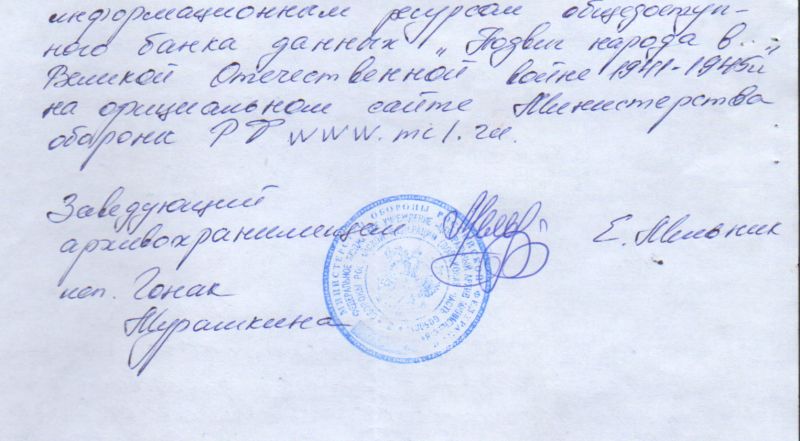 информационным ресурсам общедоступ-
ного банка данных „Подвиг народа в
Великой Отечественной войне 1941-1945гг"
на официальном сайте Министерства
обороны РФ www.mil.ru.
Заведующий
архивохранилищем
Е. Мельник
исп. Гонак
Мурашкина
МИНИСТЕРСТВО ОБОРОНЫ РОССИЙСКОЙ ФЕДЕРАЦИИ